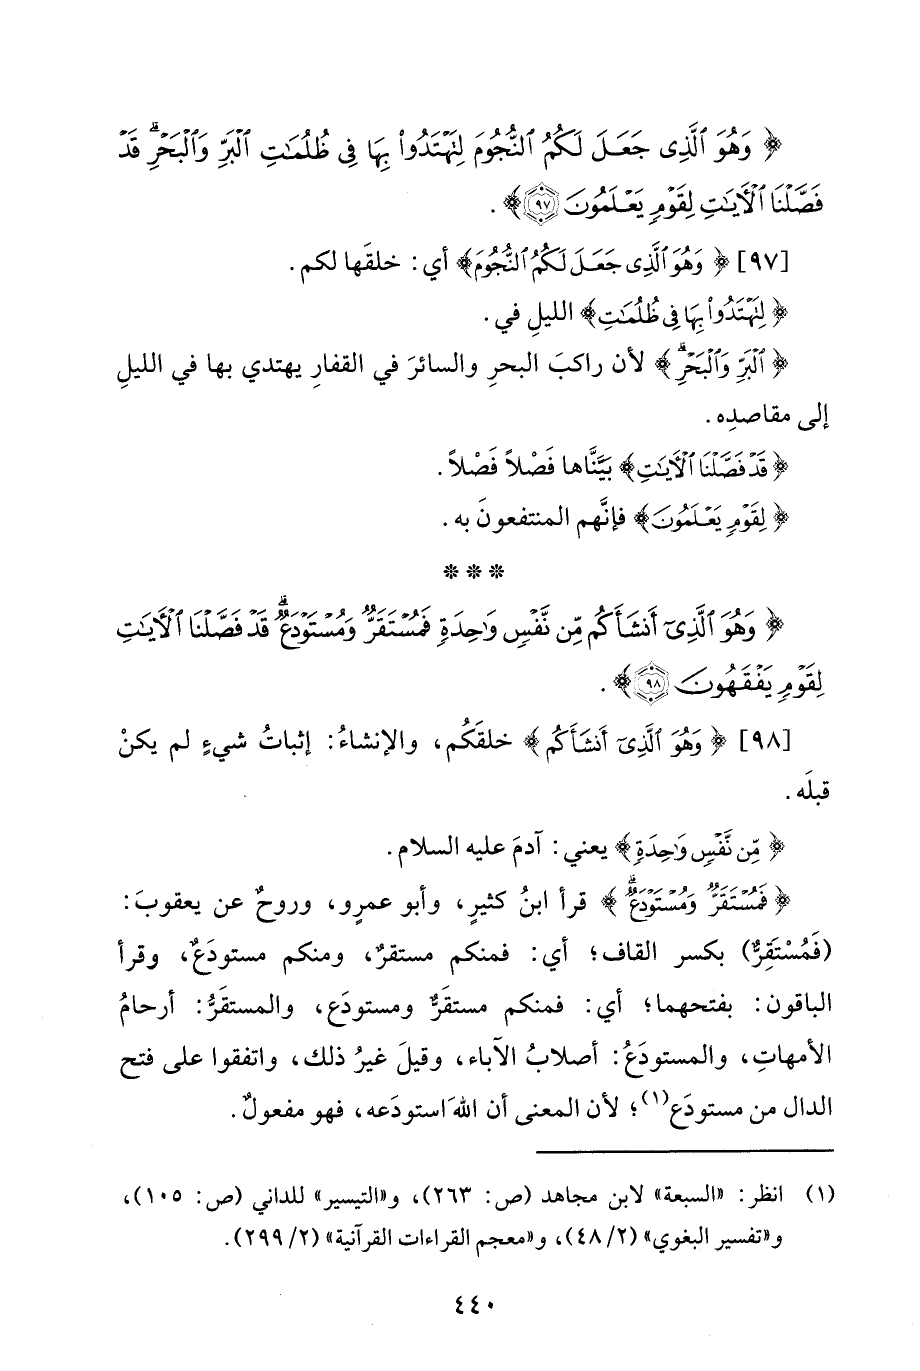 ﴿ وَهُوَ ٱلَّذِى جَعَلَ لَكُمُ ٱلنُّجُومَ لِتَهْتَدُوا۟ بِهَا فِى ظُلُمَٰتِ ٱلْبَرِّ وَٱلْبَحْرِ ۗ قَدْ
فَصَّلْنَا ٱلْءَايَٰتِ لِقَوْمٍ يَعْلَمُونَ ٩٧ ﴾ .
[٩٧] ﴿ وَهُوَ ٱلَّذِى جَعَلَ لَكُمُ ٱلنُّجُومَ ﴾ أي: خلقَها لكم.
﴿ لِتَهْتَدُوا۟ بِهَا فِى ظُلُمَٰتِ ﴾ الليلِ في.
﴿ ٱلْبَرِّ وَٱلْبَحْرِ ۗ ﴾ لأن راكبَ البحرِ والسائرَ في القفارِ يهتدي بها في الليلِ
إلى مقاصدِه.
﴿ قَدْ فَصَّلْنَا ٱلْءَايَٰتِ ﴾ بيَّنَّاها فَصْلاً فَصْلاً.
﴿ لِقَوْمٍ يَعْلَمُونَ ﴾ فإنَّهم المنتفعونَ به.
* * *
﴿ وَهُوَ ٱلَّذِىٓ أَنشَأَكُم مِّن نَّفْسٍ وَٰحِدَةٍ فَمُسْتَقَرٌّ وَمُسْتَوْدَعٌ ۗ قَدْ فَصَّلْنَا ٱلْءَايَٰتِ
لِقَوْمٍ يَفْقَهُونَ ٩٨ ﴾ .
[٩٨] ﴿ وَهُوَ ٱلَّذِىٓ أَنشَأَكُم ﴾ خلقَكُم، والإنشاءُ: إثباتُ شيءٍ لم يكنْ
قبلَه.
﴿ مِّن نَّفْسٍ وَٰحِدَةٍ ﴾ يعني: آدمَ عليه السلام.
﴿ فَمُسْتَقَرٌّ وَمُسْتَوْدَعٌ ۗ ﴾ قرأ ابنُ كثيرٍ، وأبو عمرٍو، وروحٌ عن يعقوبَ:
(فَمُسْتَقِرٌّ) بكسر القاف؛ أي: فمنكم مستقرٌ، ومنكم مستودَعٌ، وقرأ
الباقون: بفتحهما؛ أي: فمنكم مستقَرٌّ ومستودَع، والمستقَرُّ: أرحامُ
الأمهاتِ، والمستودَعُ: أصلابُ الآباء، وقيلَ غيرُ ذلك، واتفقوا على فتح
الدال من مستودَع(١)؛ لأن المعنى أن اللهَ استودَعه، فهو مفعولٌ.
(١) انظر: «السبعة» لابن مجاهد (ص: ٢٦٣)، و«التيسير» للداني (ص: ١٠٥)،
و«تفسير البغوي» (٢/ ٤٨)، و«معجم القراءات القرآنية» (٢/ ٢٩٩).
٤٤٠